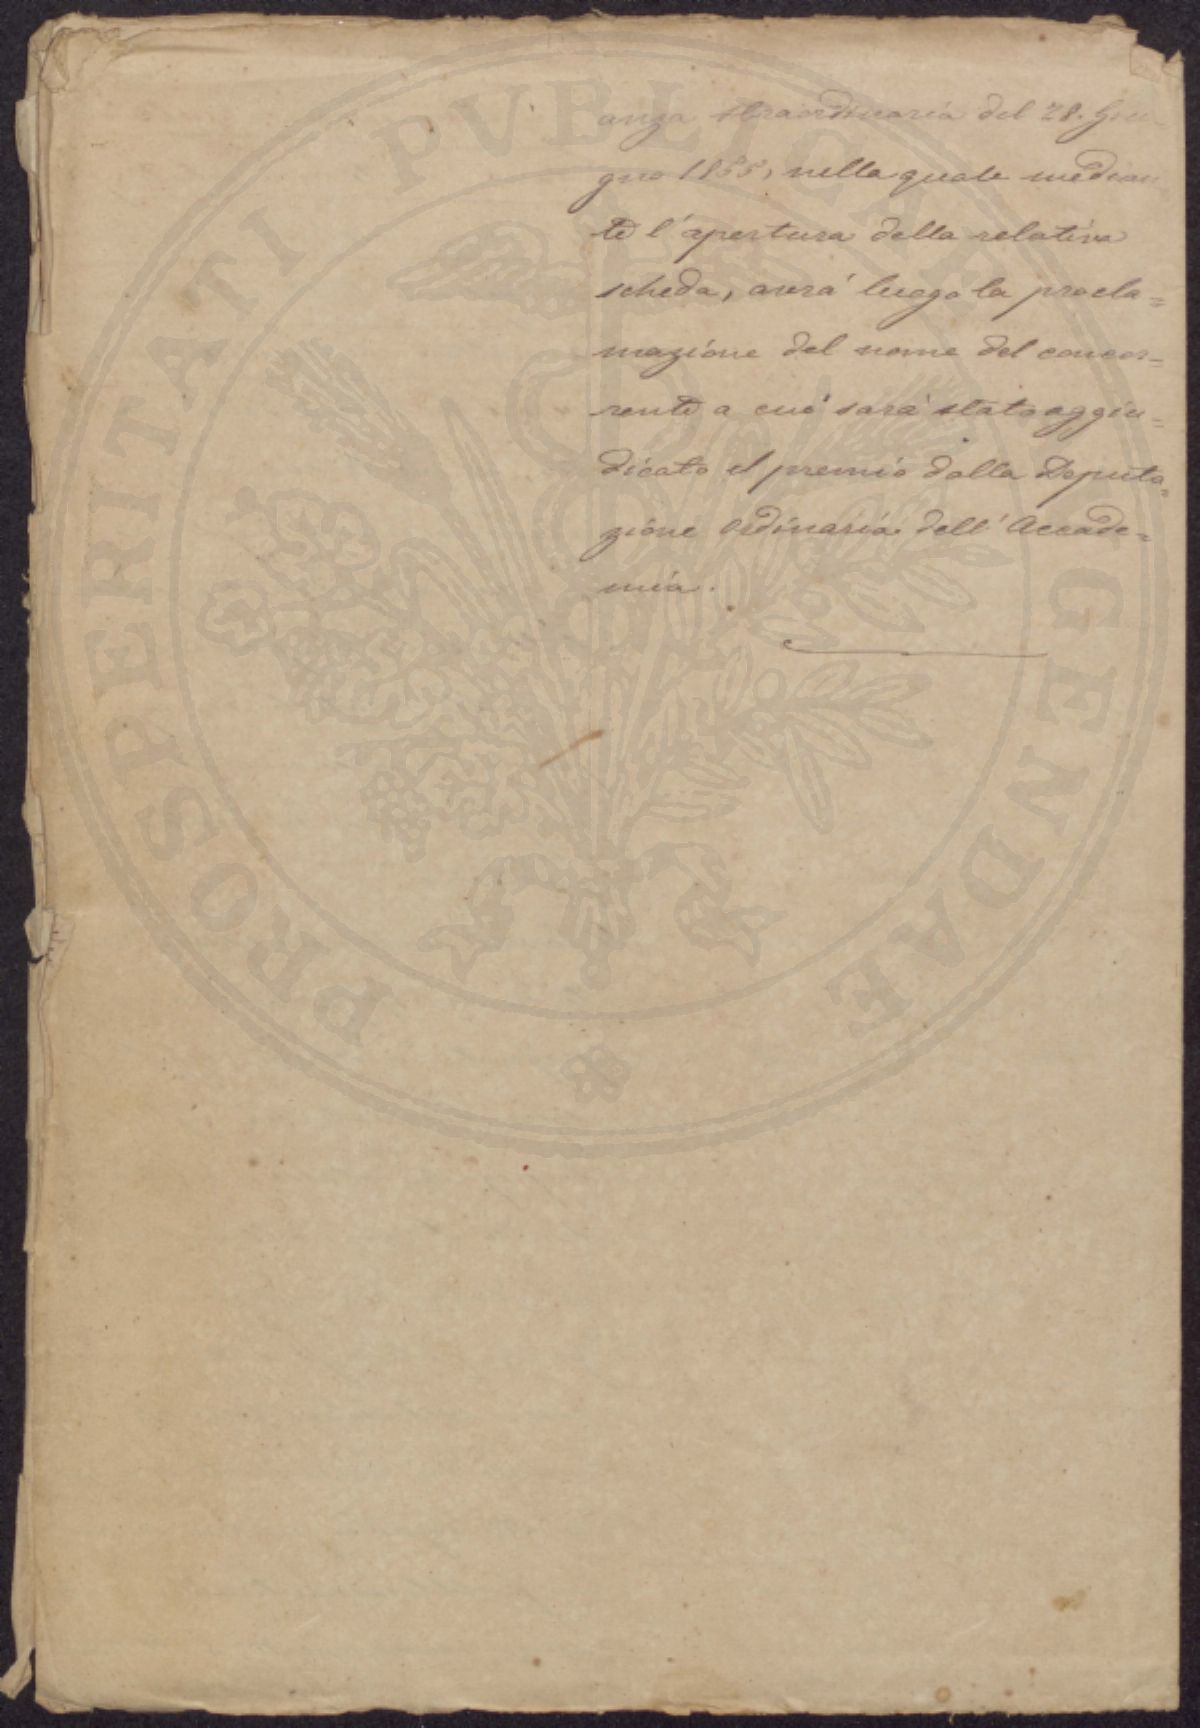 anza straordinaria del 28. Giu-
gno 1855, nella quale median
te l'apertura della relativa
scheda, avrà luogo la procla=
mazione del nome del concor=
rente a cui sarà stato aggiu=
dicato il premio dalla Deputa=
zione Ordinaria dell'Accade=
mia.
PROSPERITATI PVBLICAE AVGENDAE